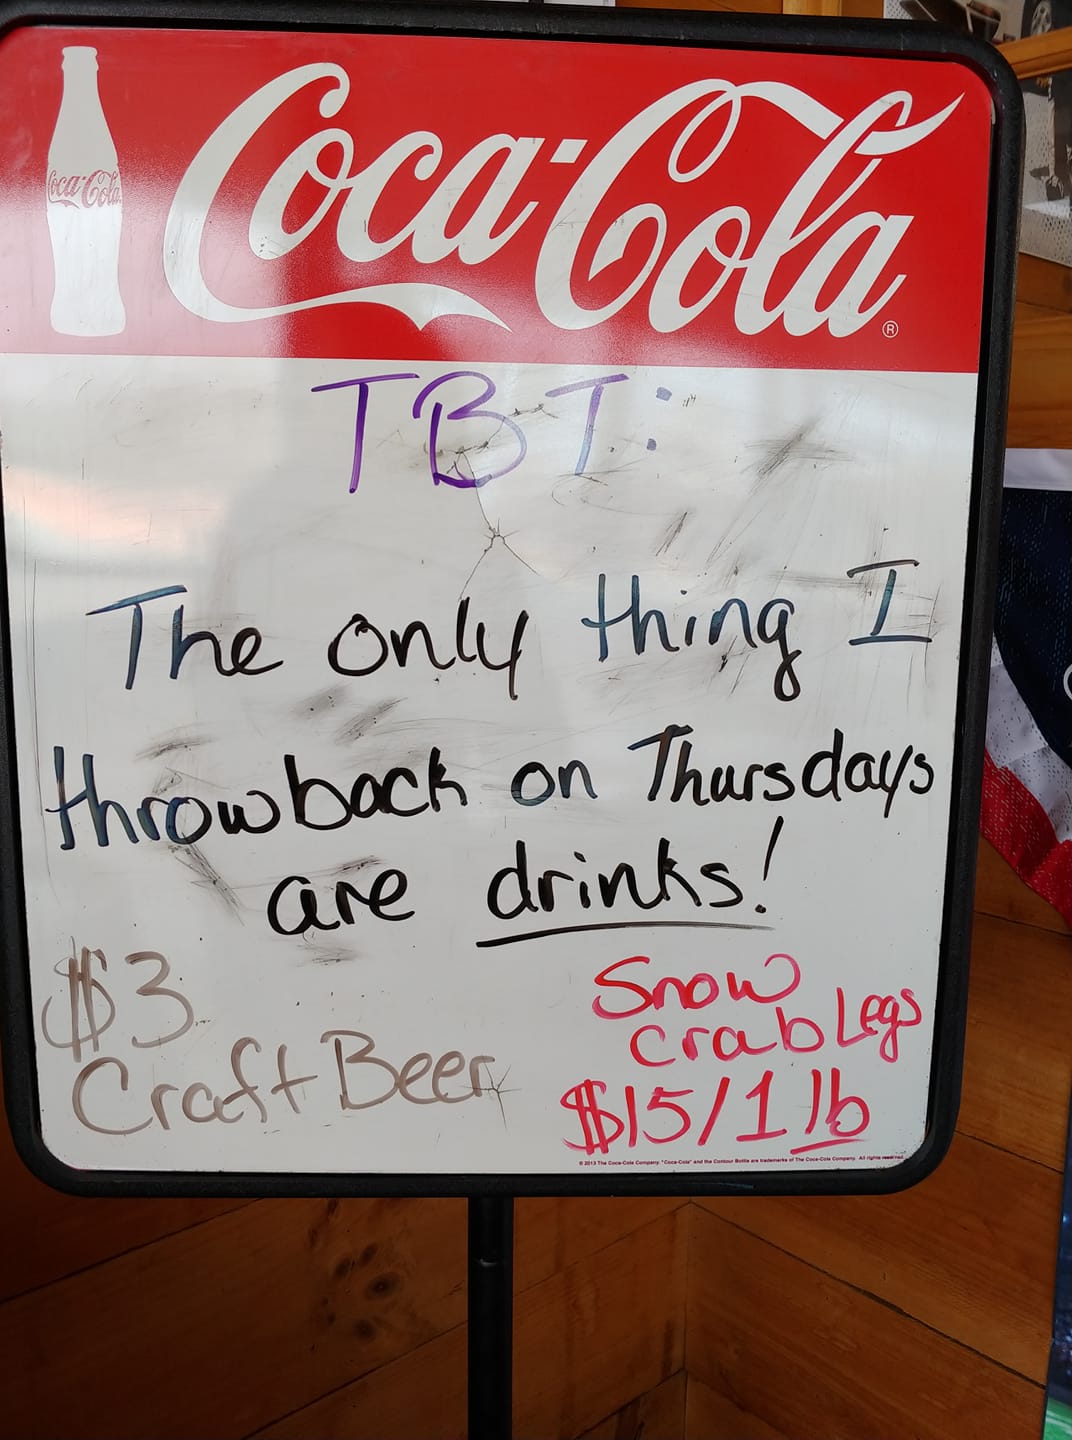 Coca-Cola
Coca-Cola ®
TBT:
The only thing I
throwback on Thursdays
are drinks!
$3
Craft Beer
Snow
crab Legs
$15/1 lb
© 2013 The Coca-Cola Company. "Coca-Cola" and the Contour Bottle are trademarks of The Coca-Cola Company. All rights reserved.